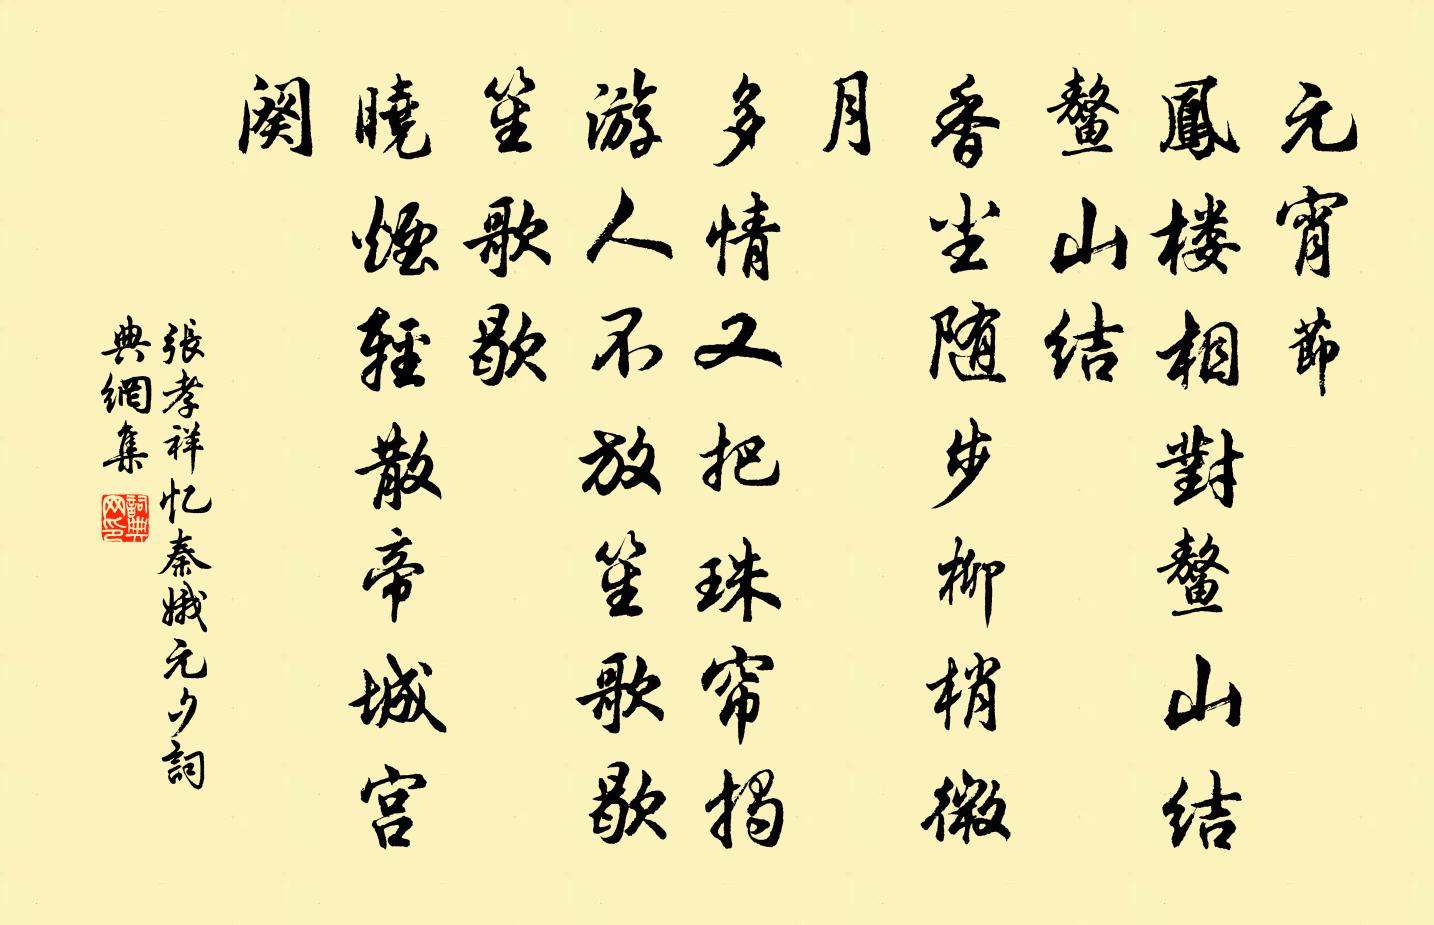 元宵節
鳳楼相對鳌山結
鳌山结
香尘随步柳梢微
月
多情又把珠帘揭
游人不放笙歌歇
笙歌歇
曉煙輕散帝城宫
阕
張孝祥忆秦娥元夕詞
典網集
詞典网印